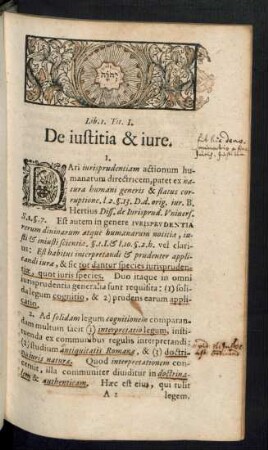 יהוה
Lib. 1. Tit. I.
De iustitia & iure.
1.
DAri iurisprudentiam actionum hu-
manarum directricem, patet ex na-
tura humani generis & status cor-
ruptione. l. 2. §. 13. D. d. orig. iur. B.
Hertius Diss. de Iurisprud. Vnivers.
§. 1. 5. 7. Est autem in genere IVRISPRVDENTIA
rerum divinarum atque humanarum notitia, iu-
sti & iniusti scientia, §. 1. I. & l. 10. §. 2. h. vel clari-
us: Est habitus interpretandi & prudenter appli-
candi iura, & sic tot dantur species iurisprudenti-
æ, quot iuris species. Duo itaque in omni
iurisprudentia generalia sunt requisita: (1) soli-
da legum cognitio, & 2) prudens earum appli-
catio.
2. Ad solidam legum cognitionem comparan-
dam multum facit (1) interpretatio legum, insti-
tuenda ex communibus regulis interpretandi:
(2) studium antiquitatis Romanæ, & (3) doctri-
na iuris naturæ. Quod interpretationem con-
cernit, illa communiter dividitur in doctrina-
lem & authenticam. Hæc est eius, qui tulit
A 2 legem.